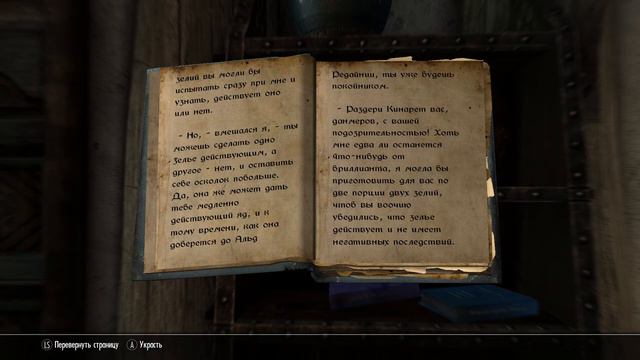 зелий вы могли бы
испытать сразу при мне и
узнать, действует оно
или нет.
- Но, - вмешался я, - ты
можешь сделать одно
зелье действующим, а
другое - нет, и оставить
себе осколок побольше.
Да, она же может дать
тебе медленно
действующий яд, и к
тому времени, как она
доберется до Альд
Редайнии, ты уже будешь
покойником.
- Раздери Кинарет вас,
данмеров, с вашей
подозрительностью! Хоть
мне едва ли останется
что-нибудь от
бриллианта, я могла бы
приготовить для вас по
две порции двух зелий,
чтоб вы воочию
убедились, что зелье
действует и не имеет
негативных последствий.
LS Перевернуть страницу A Украсть